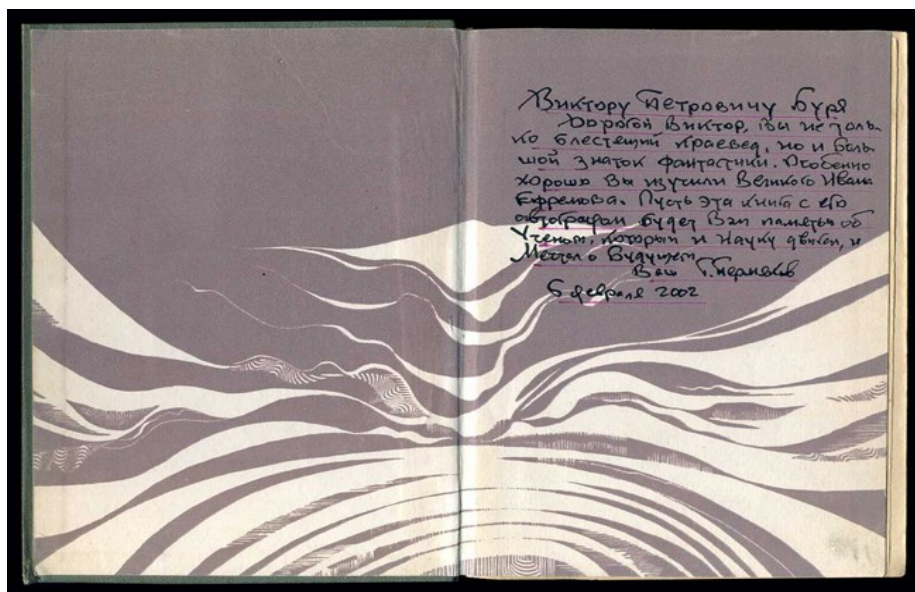 Виктору Петровичу Буря
Дорогой Виктор, Вы не толь-
ко блестящий краевед, но и боль-
шой знаток фантастики. Особенно
хорошо Вы изучили Великого Ивана
Ефремова. Пусть эта книга с его
автографом будет Вам памятью об
Ученом, который и Науку двигал, и
Мечтал о Будущем
Ваш Г.
6 февраля 2002